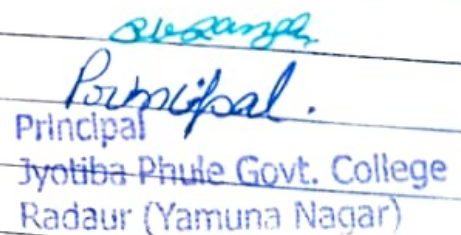 Principal.
Principal
Jyotiba Phule Govt. College
Radaur (Yamuna Nagar)